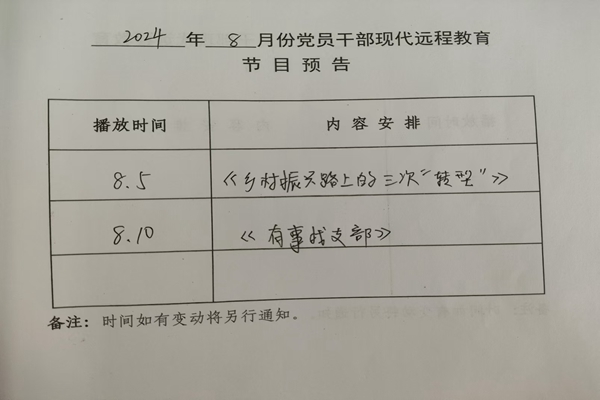 2024年8月份党员干部现代远程教育
节目预告
播放时间 内容安排
8.5 《乡村振兴路上的三次“转型”》
8.10 《有事找支部》
备注：时间如有变动将另行通知。